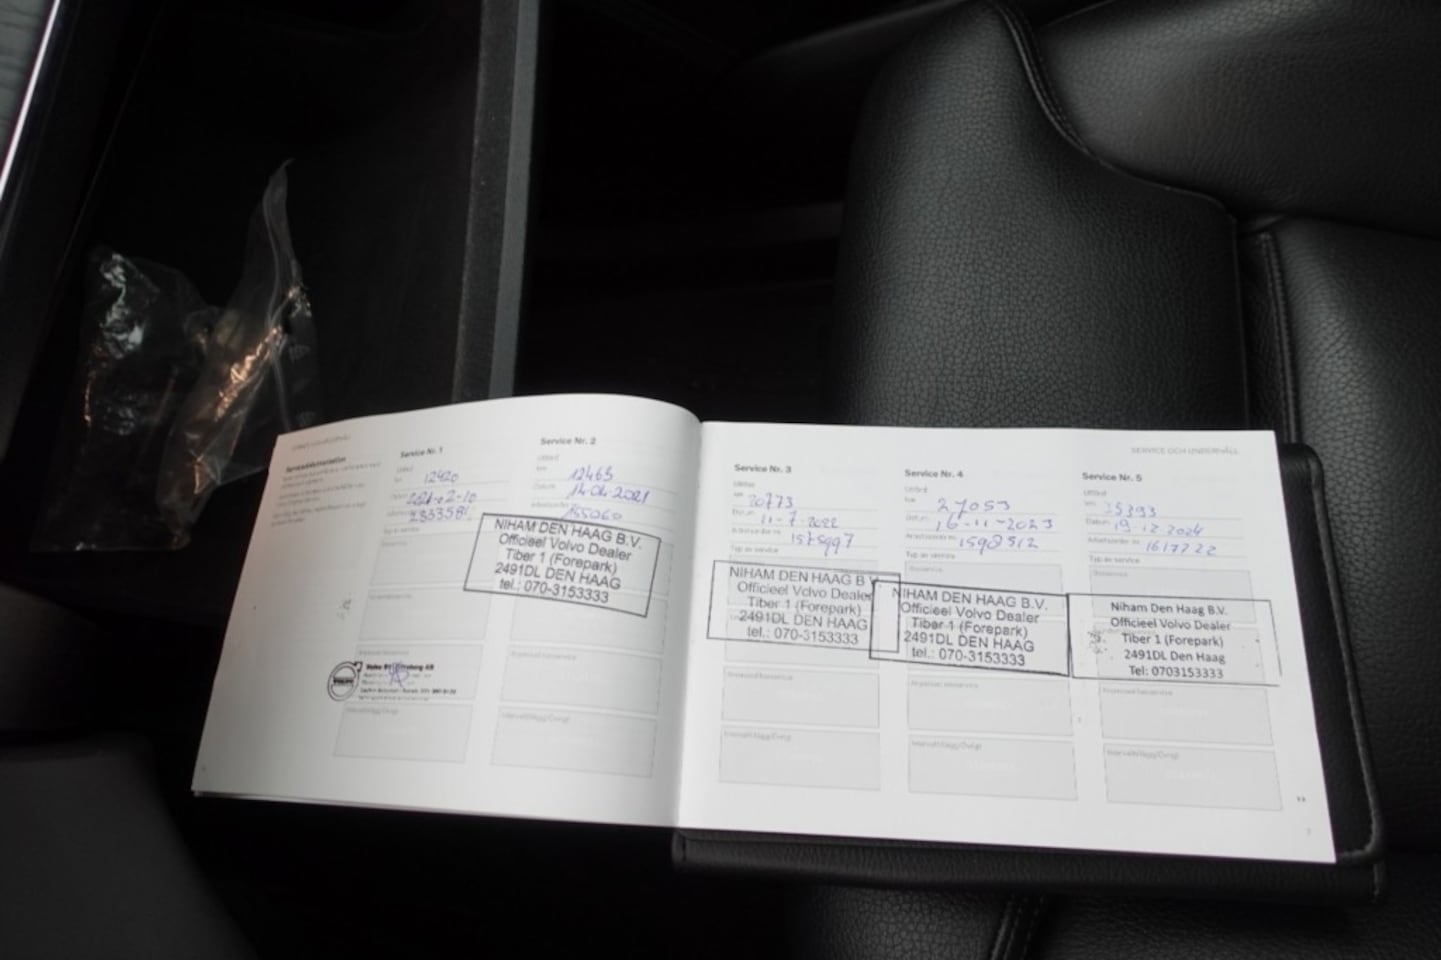 Serviceinformation
Service Nr. 1
Utförd
km 12420
Datum 2021-02-10
2333581
Typ av service
Service Nr. 2
Utförd
km 12463
Datum 14-04-2021
155060
NIHAM DEN HAAG B.V.
Officieel Volvo Dealer
Tiber 1 (Forepark)
2491DL DEN HAAG
tel.: 070-3153333
VOLVO
Intervalltillägg/Övrigt
Intervalltillägg/Övrigt
SERVICE OCH UNDERHÅLL
Service Nr. 3
Utförd
km 20773
Datum 11-7-2022
Arbetsorder nr. 1575997
Typ av service
NIHAM DEN HAAG B.V.
Officieel Volvo Dealer
Tiber 1 (Forepark)
2491DL DEN HAAG
tel.: 070-3153333
Intervalltillägg/Övrigt
Service Nr. 4
Utförd
km 27053
Datum 16-11-2023
Arbetsorder nr. 1598512
Typ av service
NIHAM DEN HAAG B.V.
Officieel Volvo Dealer
Tiber 1 (Forepark)
2491DL DEN HAAG
tel.: 070-3153333
Intervalltillägg/Övrigt
Service Nr. 5
Utförd
km 35393
Datum 19-12-2024
Arbetsorder nr. 1617722
Typ av service
Niham Den Haag B.V.
Officieel Volvo Dealer
Tiber 1 (Forepark)
2491DL Den Haag
Tel: 0703153333
Intervalltillägg/Övrigt